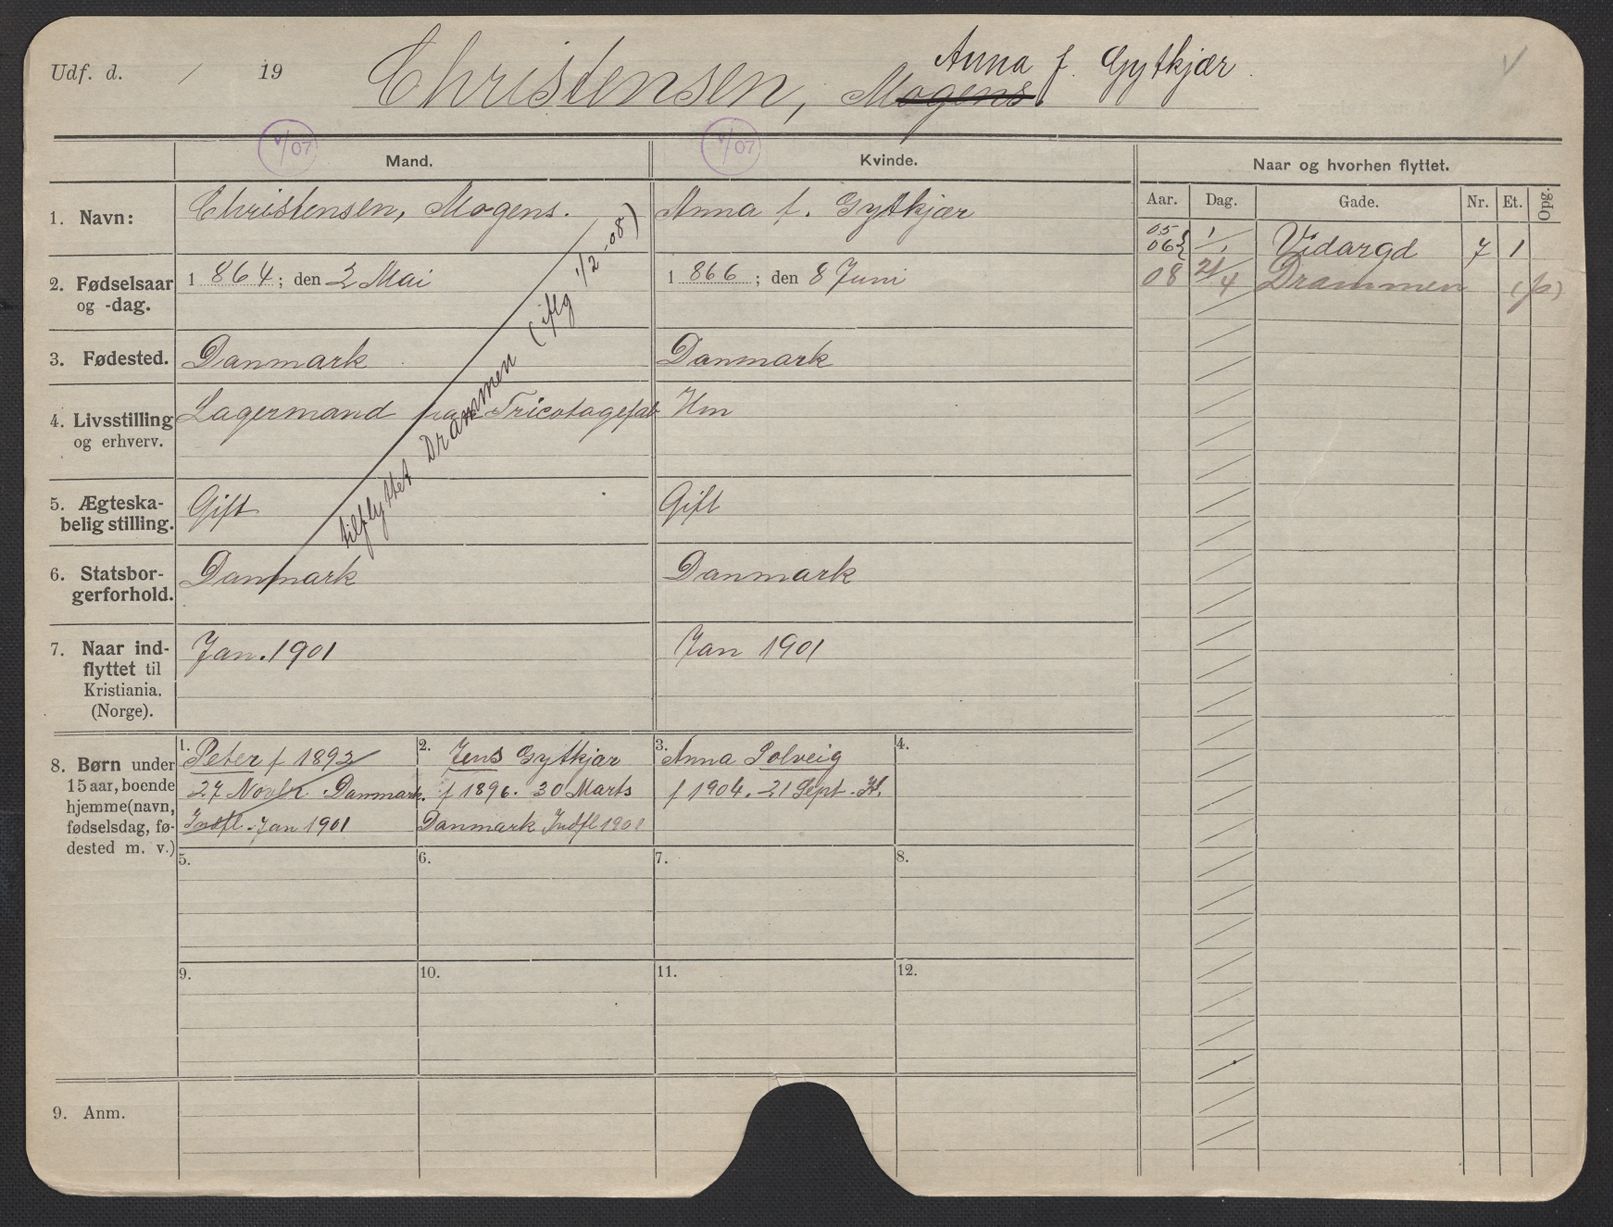 Udf. d. / 19
Christensen, Mogens. Anna f. Gytkjær.
V
1/07
1/07
Mand.
Kvinde.
Naar og hvorhen flyttet.
Aar. Dag. Gade. Nr. Et. Opg.
1. Navn:
Christensen, Mogens.
Anna f. Gytkjær
05
06 } 1/1 Vidargd 7 1
08 21/4 Drammen (p)
2. Fødselsaar
og -dag.
1 864 ; den 2 Mai
1 866 ; den 8 Juni
3. Fødested.
Danmark
Danmark
4. Livsstilling
og erhverv.
Lagermand paa Tricotagefab
Hm
5. Ægteska-
belig stilling.
Gift
Gift
6. Statsbor-
gerforhold.
Danmark
Danmark
tilflyttet Drammen (iflg 1/2-08)
7. Naar ind-
flyttet til
Kristiania.
(Norge).
Jan. 1901
Jan 1901
8. Børn under
15 aar, boende
hjemme (navn,
fødselsdag, fø-
dested m. v.)
1. Peter f 1892
27 Novbr. Danmark.
Indfl. Jan 1901
2. Jens Gytkjær
f 1896. 30 Marts
Danmark Indfl 1901
3. Anna Solveig
f 1904. 21 Sept. K.
4.
5.
6.
7.
8.
9.
10.
11.
12.
9. Anm.